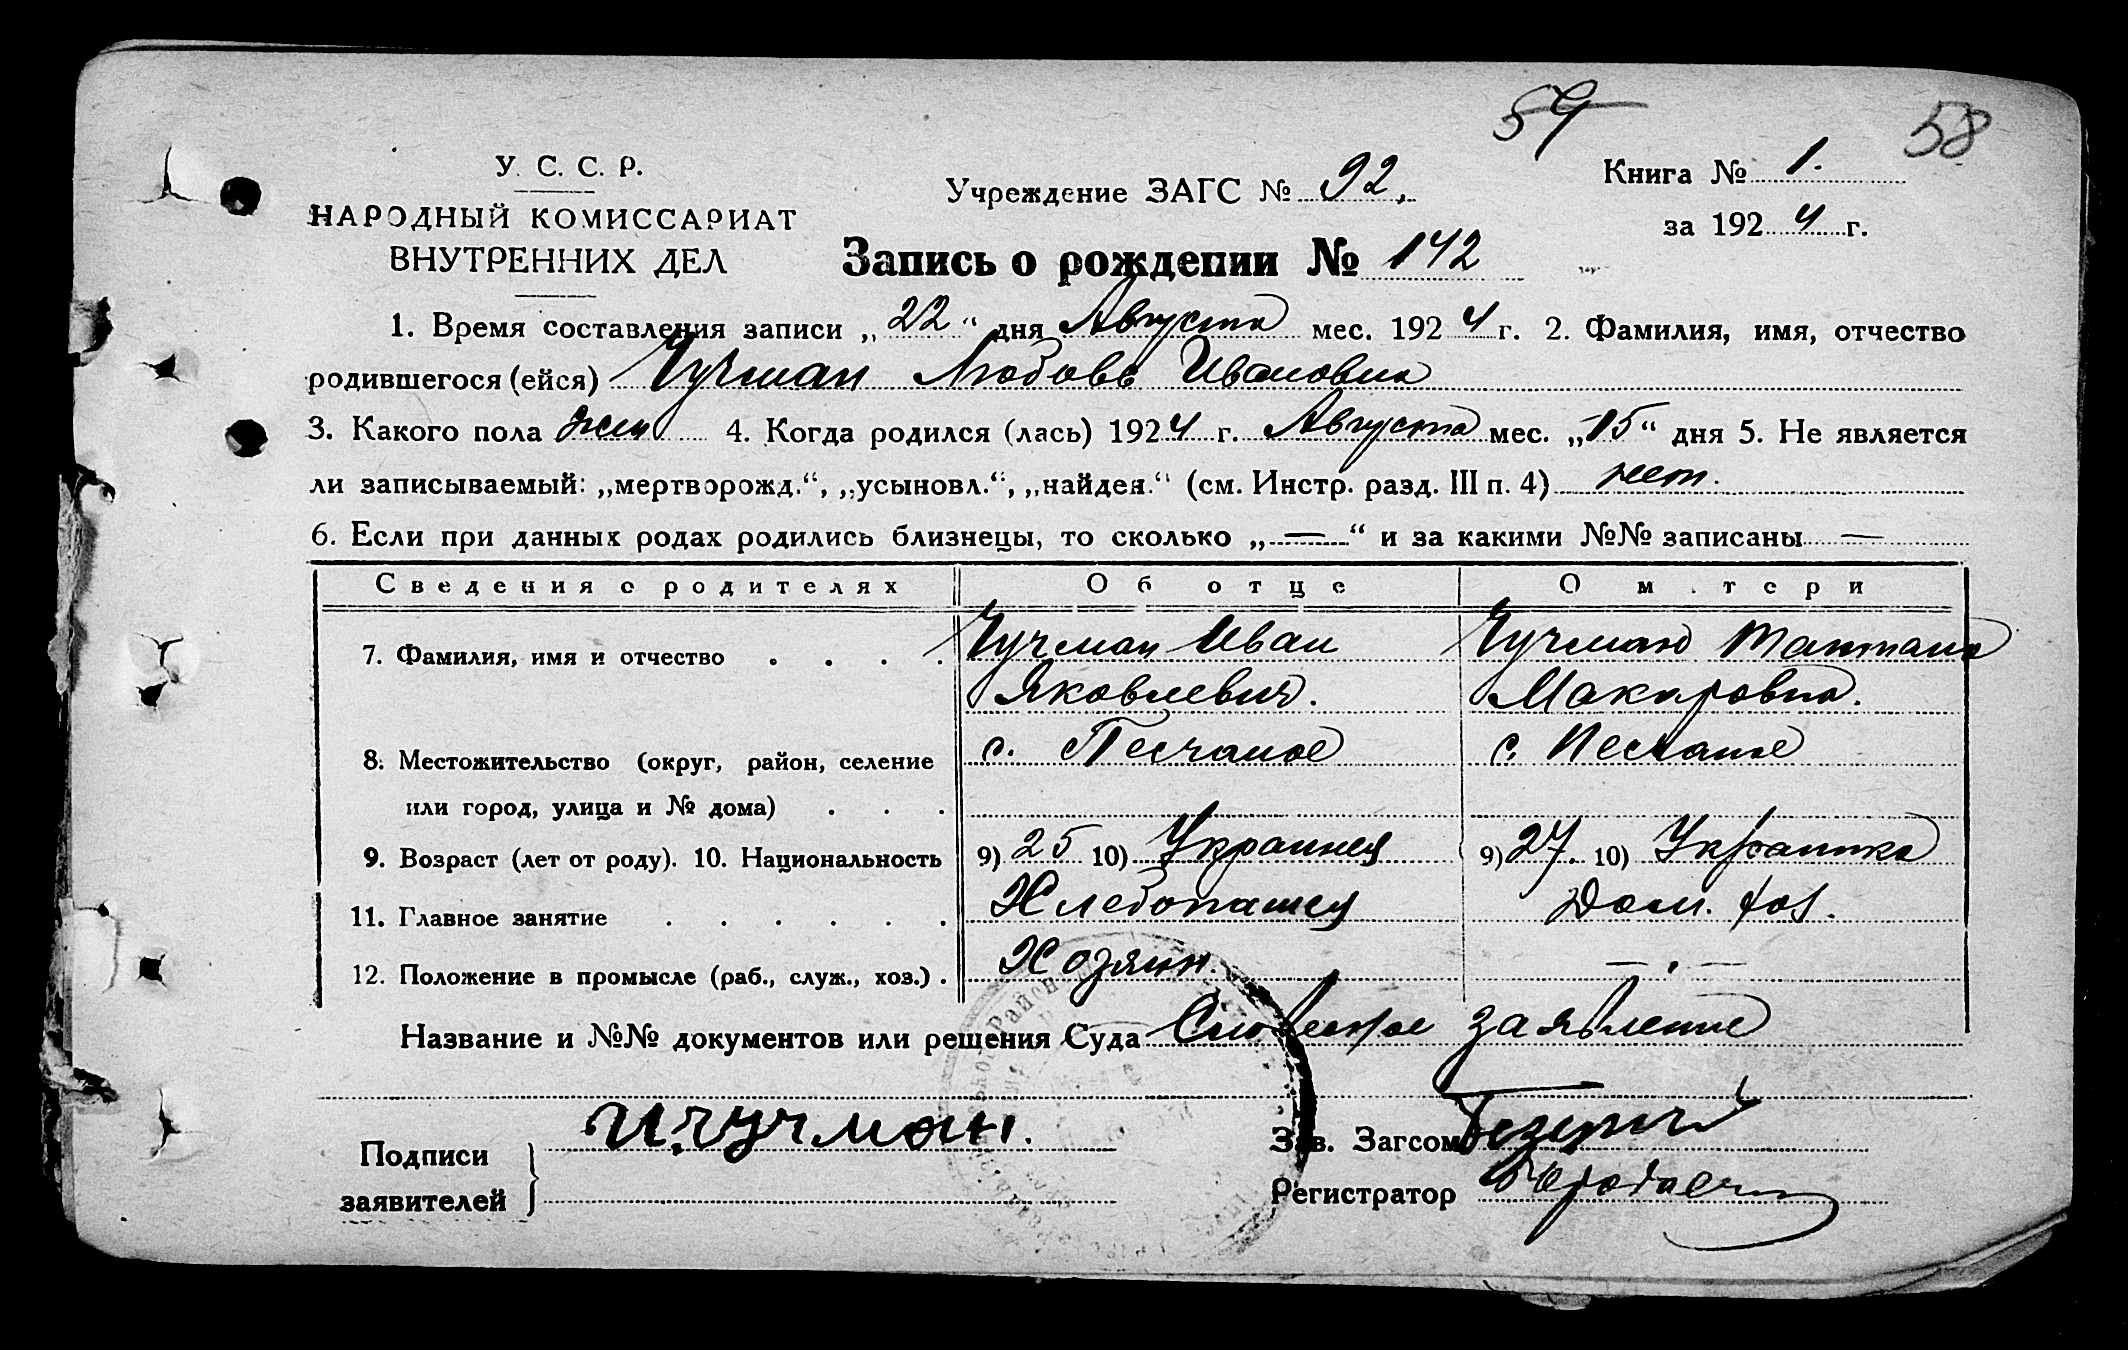 59 58
У. С. С. Р.
НАРОДНЫЙ КОМИССАРИАТ
ВНУТРЕННИХ ДЕЛ
Учреждение ЗАГС № 92.
Книга № 1.
за 1924 г.
Запись о рождении № 142
1. Время составления записи „22“ дня Августа мес. 1924 г. 2. Фамилия, имя, отчество
родившегося (ейся) Чучман Любовь Ивановна
3. Какого пола жен 4. Когда родился (лась) 1924 г. Августа мес. „15“ дня 5. Не является
ли записываемый: „мертворожд.“, „усыновл.“, „найден.“ (см. Инстр. разд. III п. 4) нет.
6. Если при данных родах родились близнецы, то сколько „—“ и за какими №№ записаны —
Сведения о родителях Об отце О м.тери
7. Фамилия, имя и отчество . . . . Чучман Иван Чучман Татиана
Яковлевич. Макаровна.
8. Местожительство (округ, район, селение с. Песчаное с. Песчаное
или город, улица и № дома) . . .
9. Возраст (лет от роду). 10. Национальность 9) 25 10) Украинец 9) 27. 10) Украинка
11. Главное занятие . . . . . . Хлебопашец Дом. хоз.
12. Положение в промысле (раб., служ., хоз.) . Хозяин. — . —
Название и №№ документов или решения Суда Словесное заявление
Подписи И.Чучман. Зав. Загсом
заявителей Регистратор